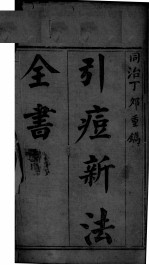 同治丁卯重鐫
引痘新法
全書